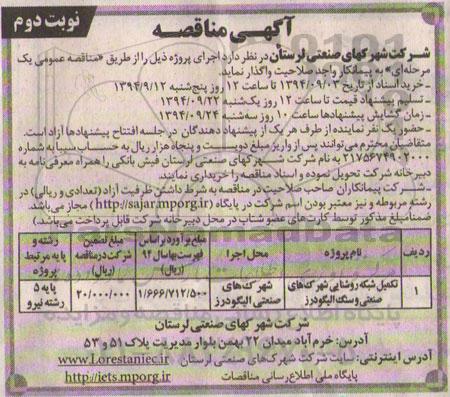 آگهی مناقصه
نوبت دوم
شرکت شهرکهای صنعتی لرستان در نظر دارد اجرای پروژه ذیل را از طریق «مناقصه عمومی یک
مرحله‌ای» به پیمانکار واجد صلاحیت واگذار نماید.
-خرید اسناد از تاریخ ۱۳۹۴/۰۹/۰۳ تا ساعت ۱۲ روز پنج‌شنبه ۱۳۹۴/۹/۱۲
- تسلیم پیشنهاد قیمت تا ساعت ۱۲ روز یک‌شنبه ۱۳۹۴/۰۹/۲۲
-زمان گشایش پیشنهادها ساعت ۱۰ روز سه‌شنبه ۱۳۹۴/۰۹/۲۴
-حضور یک نفر نماینده از طرف هر یک از پیشنهاد دهندگان در جلسه افتتاح پیشنهادها آزاد است.
متقاضیان محترم می‌توانند پس از واریز مبلغ دویست و پنجاه هزار ریال به حساب سیبا به شماره
۲۱۷۵۶۷۴۹۰۲۰۰۰ به نام شرکت شهرکهای صنعتی لرستان فیش بانکی را همراه معرفی نامه به
دبیرخانه شرکت تحویل نموده و اسناد مناقصه را خریداری نمایند.
-شرکت پیمانکاران صاحب صلاحیت در مناقصه به شرط داشتن ظرفیت آزاد (تعدادی و ریالی) در
رشته مربوطه و نیز معتبر بودن اسم شرکت در پایگاه (http://sajar.mporg.ir) مجاز می‌باشد.
ضمناً مبلغ مذکور توسط کارت‌های عضو شتاب در محل دبیرخانه شرکت قابل پرداخت می‌باشد.)
ردیف
نام پروژه
محل اجرا
مبلغ برآورد براساس فهرست بهای سال ۹۴ (ریال)
مبلغ تضمین شرکت در مناقصه (ریال)
رشته و پایه مرتبط پروژه
۱
تکمیل شبکه روشنایی شهرک‌های صنعتی و سنگ الیگودرز
شهرک‌های صنعتی الیگودرز
۱/۶۶۶/۷۱۲/۵۰۰
۲۰/۰۰۰/۰۰۰
پایه ۵ رشته نیرو
شرکت شهرکهای صنعتی لرستان
آدرس: خرم‌آباد میدان ۲۲ بهمن بلوار مدیریت پلاک ۵۱ و ۵۳
آدرس اینترنتی: سایت شرکت شهرک‌های صنعتی لرستان www.Lorestaniec.ir
پایگاه ملی اطلاع‌رسانی مناقصات http://iets.mporg.ir